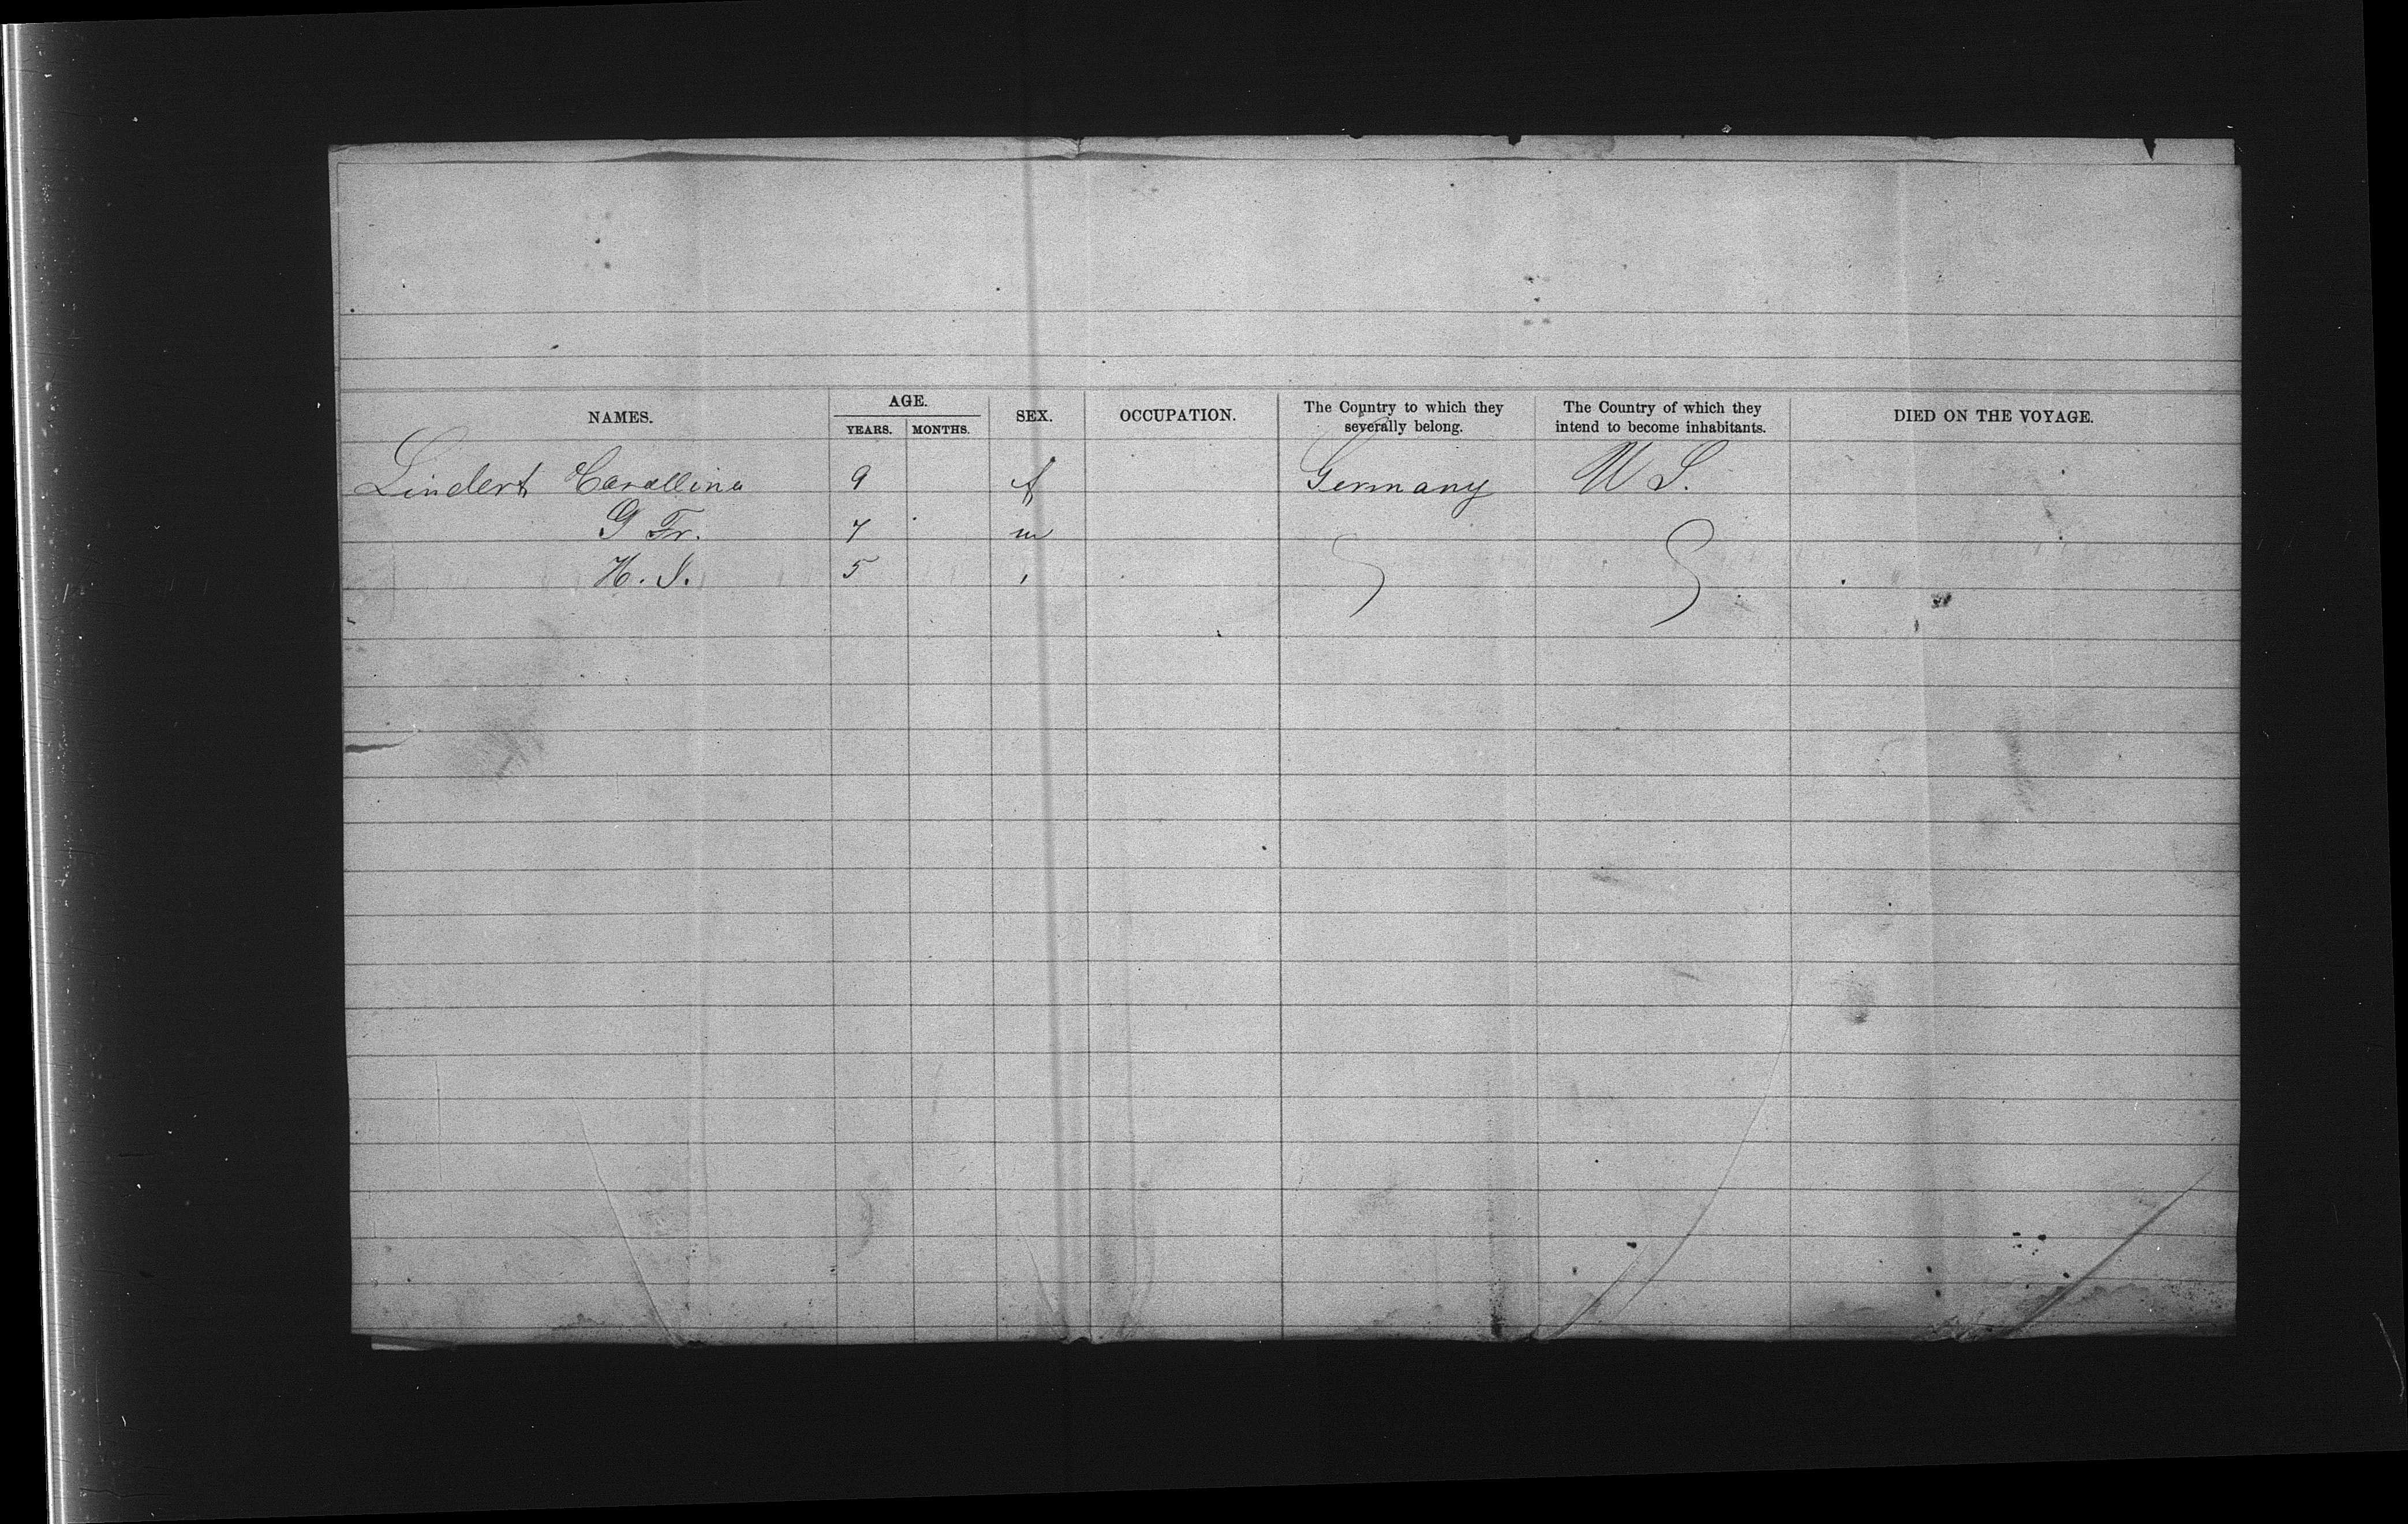 NAMES. AGE. YEARS. MONTHS. SEX. OCCUPATION. The Country to which they severally belong. The Country of which they intend to become inhabitants. DIED ON THE VOYAGE.
Lindert Carollina 9 f Germany U S.
G Fr. 7 m
H. J. 5 "